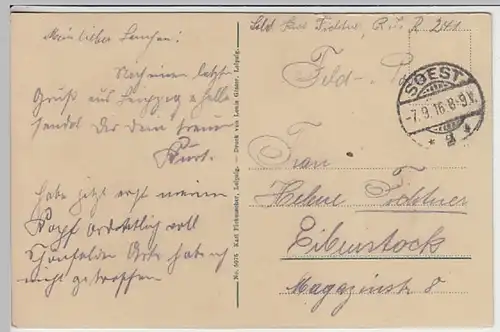 Mein lieber Lenchen!
Noch einen letzten
Gruß aus Leipzig
sendet Dir dein treuer
Kurt.
habe jetzt erst meinen
Kopf ordentlich voll
habe ich
nicht getroffen
No. 5675 Karl Fickenscher, Leipzig. — Druck von Louis Glaser, Leipzig.
Sold. Kurt Fichtner R. I. R. 241
Feld-
SOEST
-7.9.16.8-9V.
* 2 *
Frau
Helene Fichtner
Eibenstock
Magazinstr 8